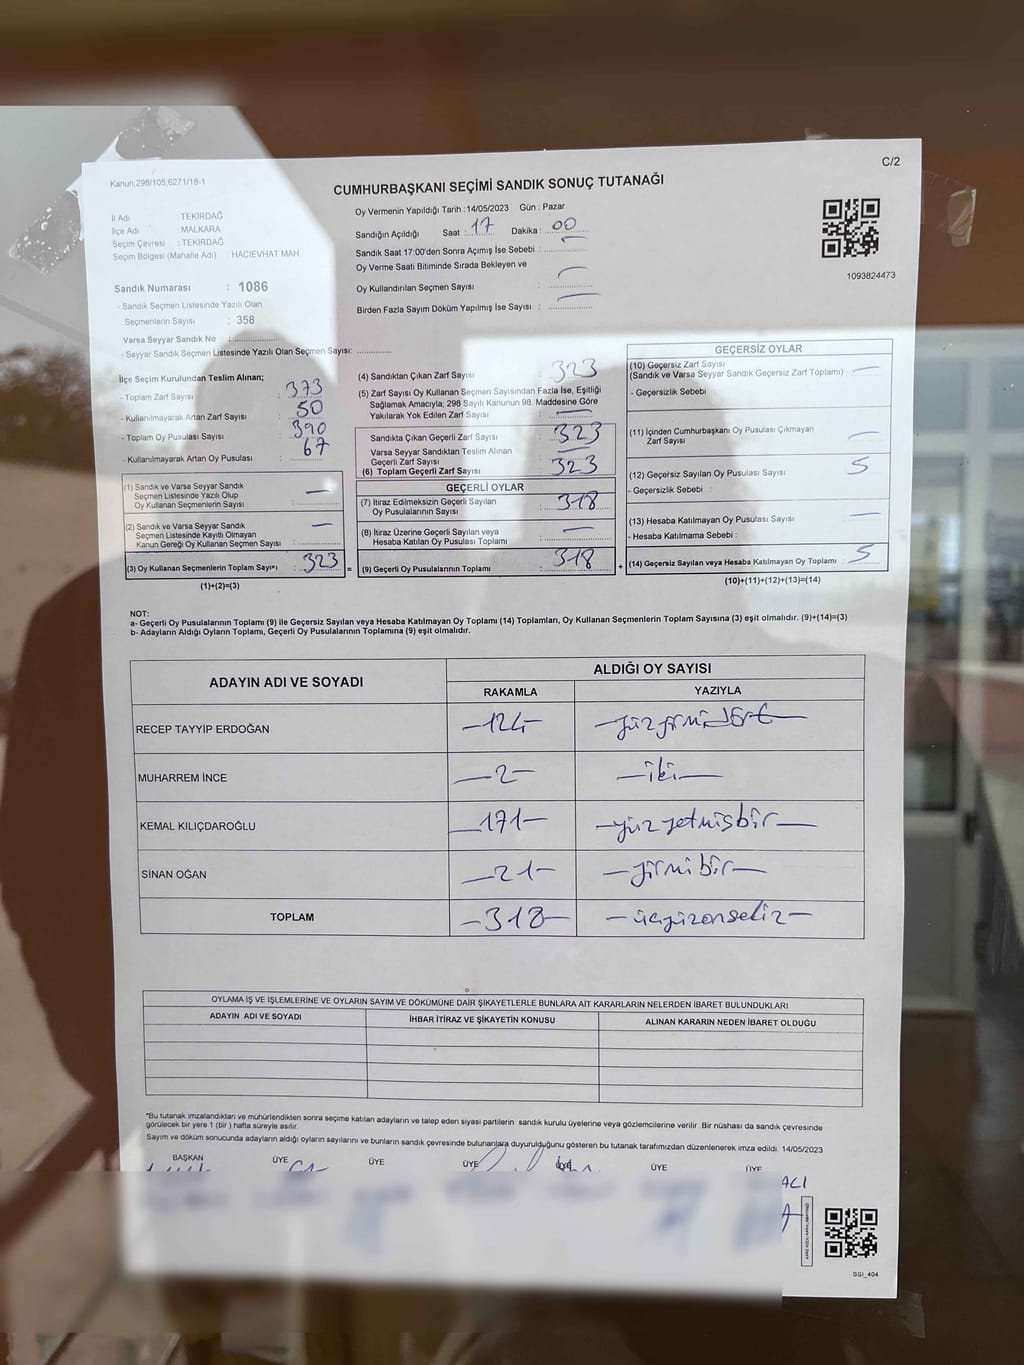 C/2
Kanun,298/105,6271/18-1
CUMHURBAŞKANI SEÇİMİ SANDIK SONUÇ TUTANAĞI
İl Adı : TEKİRDAĞ
İlçe Adı : MALKARA
Seçim Çevresi : TEKİRDAĞ
Seçim Bölgesi (Mahalle Adı) : HACIEVHAT MAH.
Sandık Numarası : 1086
- Sandık Seçmen Listesinde Yazılı Olan
Seçmenlerin Sayısı : 358
Varsa Seyyar Sandık No :
- Seyyar Sandık Seçmen Listesinde Yazılı Olan Seçmen Sayısı:
Oy Vermenin Yapıldığı Tarih :14/05/2023 Gün : Pazar
Sandığın Açıldığı Saat : 17 Dakika : 00
Sandık Saat 17:00'den Sonra Açılmış İse Sebebi : —
Oy Verme Saati Bitiminde Sırada Bekleyen ve
Oy Kullandırılan Seçmen Sayısı : —
Birden Fazla Sayım Döküm Yapılmış İse Sayısı : —
1093824473
İlçe Seçim Kurulundan Teslim Alınan;
- Toplam Zarf Sayısı : 373
- Kullanılmayarak Artan Zarf Sayısı : 50
- Toplam Oy Pusulası Sayısı : 390
- Kullanılmayarak Artan Oy Pusulası : 67
(1) Sandık ve Varsa Seyyar Sandık
Seçmen Listesinde Yazılı Olup
Oy Kullanan Seçmenlerin Sayısı : —
(2) Sandık ve Varsa Seyyar Sandık
Seçmen Listesinde Kayıtlı Olmayan
Kanun Gereği Oy Kullanan Seçmen Sayısı : —
(3) Oy Kullanan Seçmenlerin Toplam Sayısı : 323
(1)+(2)=(3)
(4) Sandıktan Çıkan Zarf Sayısı : 323
(5) Zarf Sayısı Oy Kullanan Seçmen Sayısından Fazla İse, Eşitliği
Sağlamak Amacıyla; 298 Sayılı Kanunun 98. Maddesine Göre
Yakılarak Yok Edilen Zarf Sayısı : —
Sandıkta Çıkan Geçerli Zarf Sayısı : 323
Varsa Seyyar Sandıktan Teslim Alınan
Geçerli Zarf Sayısı : —
(6) Toplam Geçerli Zarf Sayısı : 323
GEÇERLİ OYLAR
(7) İtiraz Edilmeksizin Geçerli Sayılan
Oy Pusulalarının Sayısı : 318
(8) İtiraz Üzerine Geçerli Sayılan veya
Hesaba Katılan Oy Pusulası Toplamı : —
= (9) Geçerli Oy Pusulalarının Toplamı : 318
GEÇERSİZ OYLAR
(10) Geçersiz Zarf Sayısı : —
(Sandık ve Varsa Seyyar Sandık Geçersiz Zarf Toplamı)
- Geçersizlik Sebebi :
(11) İçinden Cumhurbaşkanı Oy Pusulası Çıkmayan : —
Zarf Sayısı
(12) Geçersiz Sayılan Oy Pusulası Sayısı : 5
- Geçersizlik Sebebi :
(13) Hesaba Katılmayan Oy Pusulası Sayısı : —
- Hesaba Katılmama Sebebi :
+ (14) Geçersiz Sayılan veya Hesaba Katılmayan Oy Toplamı : 5
(10)+(11)+(12)+(13)=(14)
NOT:
a- Geçerli Oy Pusulalarının Toplamı (9) ile Geçersiz Sayılan veya Hesaba Katılmayan Oy Toplamı (14) Toplamları, Oy Kullanan Seçmenlerin Toplam Sayısına (3) eşit olmalıdır. (9)+(14)=(3)
b- Adayların Aldığı Oyların Toplamı, Geçerli Oy Pusulalarının Toplamına (9) eşit olmalıdır.
ADAYIN ADI VE SOYADI ALDIĞI OY SAYISI
RAKAMLA YAZIYLA
RECEP TAYYİP ERDOĞAN —124— —yüzyirmidört—
MUHARREM İNCE —2— —iki—
KEMAL KILIÇDAROĞLU —171— —yüzyetmişbir—
SİNAN OĞAN —21— —yirmibir—
TOPLAM —318— —üçyüzonsekiz—
OYLAMA İŞ VE İŞLEMLERİNE VE OYLARIN SAYIM VE DÖKÜMÜNE DAİR ŞİKAYETLERLE BUNLARA AİT KARARLARIN NELERDEN İBARET BULUNDUKLARI
ADAYIN ADI VE SOYADI İHBAR İTİRAZ VE ŞİKAYETİN KONUSU ALINAN KARARIN NEDEN İBARET OLDUĞU
*Bu tutanak imzalandıktan ve mühürlendikten sonra seçime katılan adayların ve talep eden siyasi partilerin sandık kurulu üyelerine veya gözlemcilerine verilir. Bir nüshası da sandık çevresinde
görülecek bir yere 1 (bir ) hafta süreyle asılır.
Sayım ve döküm sonucunda adayların aldığı oyların sayılarını ve bunların sandık çevresinde bulunanlara duyurulduğunu gösteren bu tutanak tarafımızdan düzenlenerek imza edildi. 14/05/2023
BAŞKAN ÜYE ÜYE ÜYE ÜYE ÜYE ÜYE
ALI
SSI_404